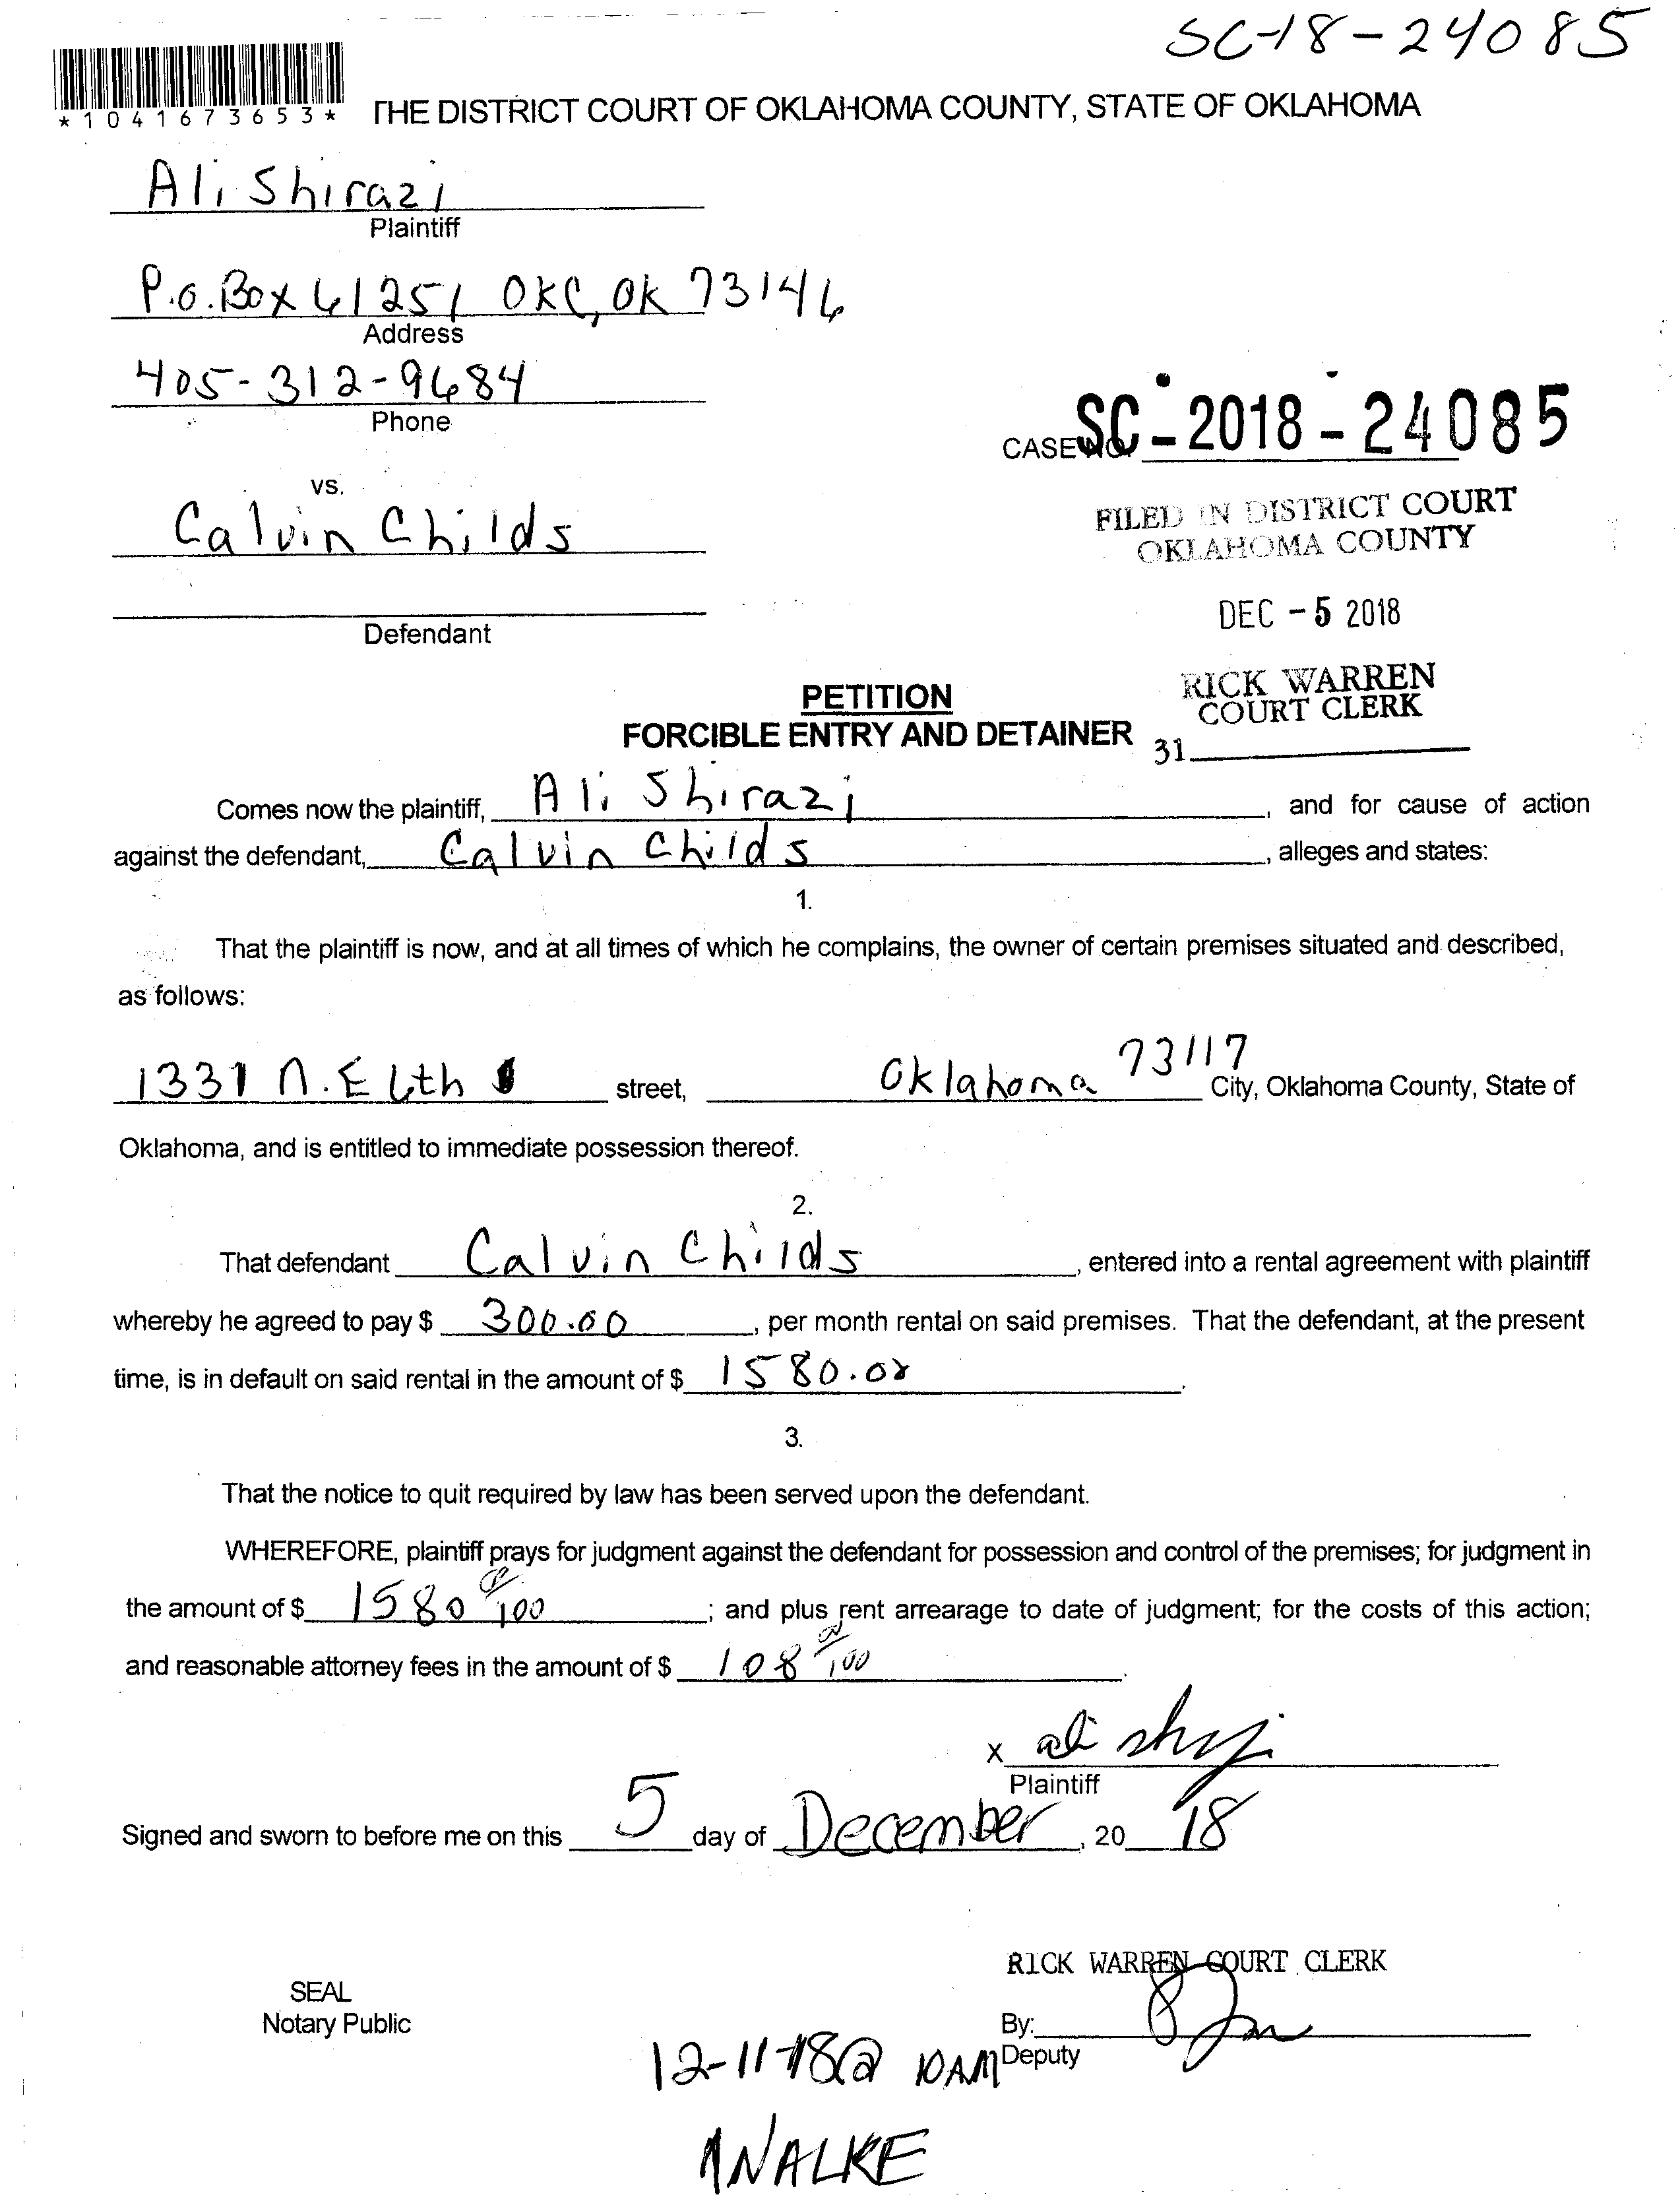 SC-18-24085
*1041673653*
THE DISTRICT COURT OF OKLAHOMA COUNTY, STATE OF OKLAHOMA
Ali Shirazi
Plaintiff
P.O. Box 61251 OKC, OK 73146
Address
405-312-9684
Phone
CASE NO. SC-2018-24085
vs.
Calvin Childs
FILED IN DISTRICT COURT
OKLAHOMA COUNTY
DEC -5 2018
Defendant
RICK WARREN
COURT CLERK
31
PETITION
FORCIBLE ENTRY AND DETAINER
Comes now the plaintiff, Ali Shirazi, and for cause of action
against the defendant, Calvin Childs, alleges and states:
1.
That the plaintiff is now, and at all times of which he complains, the owner of certain premises situated and described,
as follows:
1331 N.E 6th street, Oklahoma 73117 City, Oklahoma County, State of
Oklahoma, and is entitled to immediate possession thereof.
2.
That defendant Calvin Childs, entered into a rental agreement with plaintiff
whereby he agreed to pay $ 300.00, per month rental on said premises. That the defendant, at the present
time, is in default on said rental in the amount of $ 1580.00.
3.
That the notice to quit required by law has been served upon the defendant.
WHEREFORE, plaintiff prays for judgment against the defendant for possession and control of the premises; for judgment in
the amount of $ 1580 00/100; and plus rent arrearage to date of judgment; for the costs of this action;
and reasonable attorney fees in the amount of $ 108 00/100.
X
Plaintiff
Signed and sworn to before me on this 5 day of December, 20 18
RICK WARREN COURT CLERK
SEAL
Notary Public
By:
Deputy
12-11-18@ 10AM